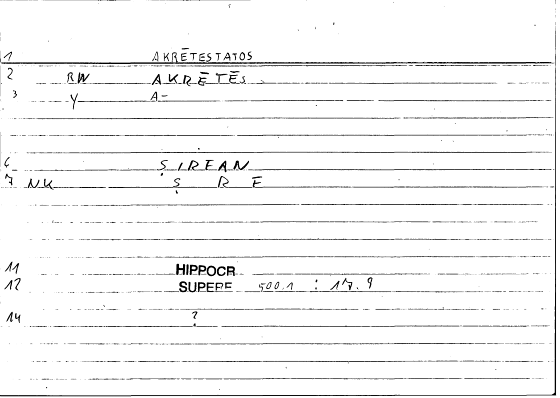 1 AKRĒTESTATOS
2 RW AKRĒTĒS
3 Y A-
6 ṢIREAN
7 NK Ṣ R Ē
11 HIPPOCR
12 SUPERF 500.1 : 17.9
14 ?